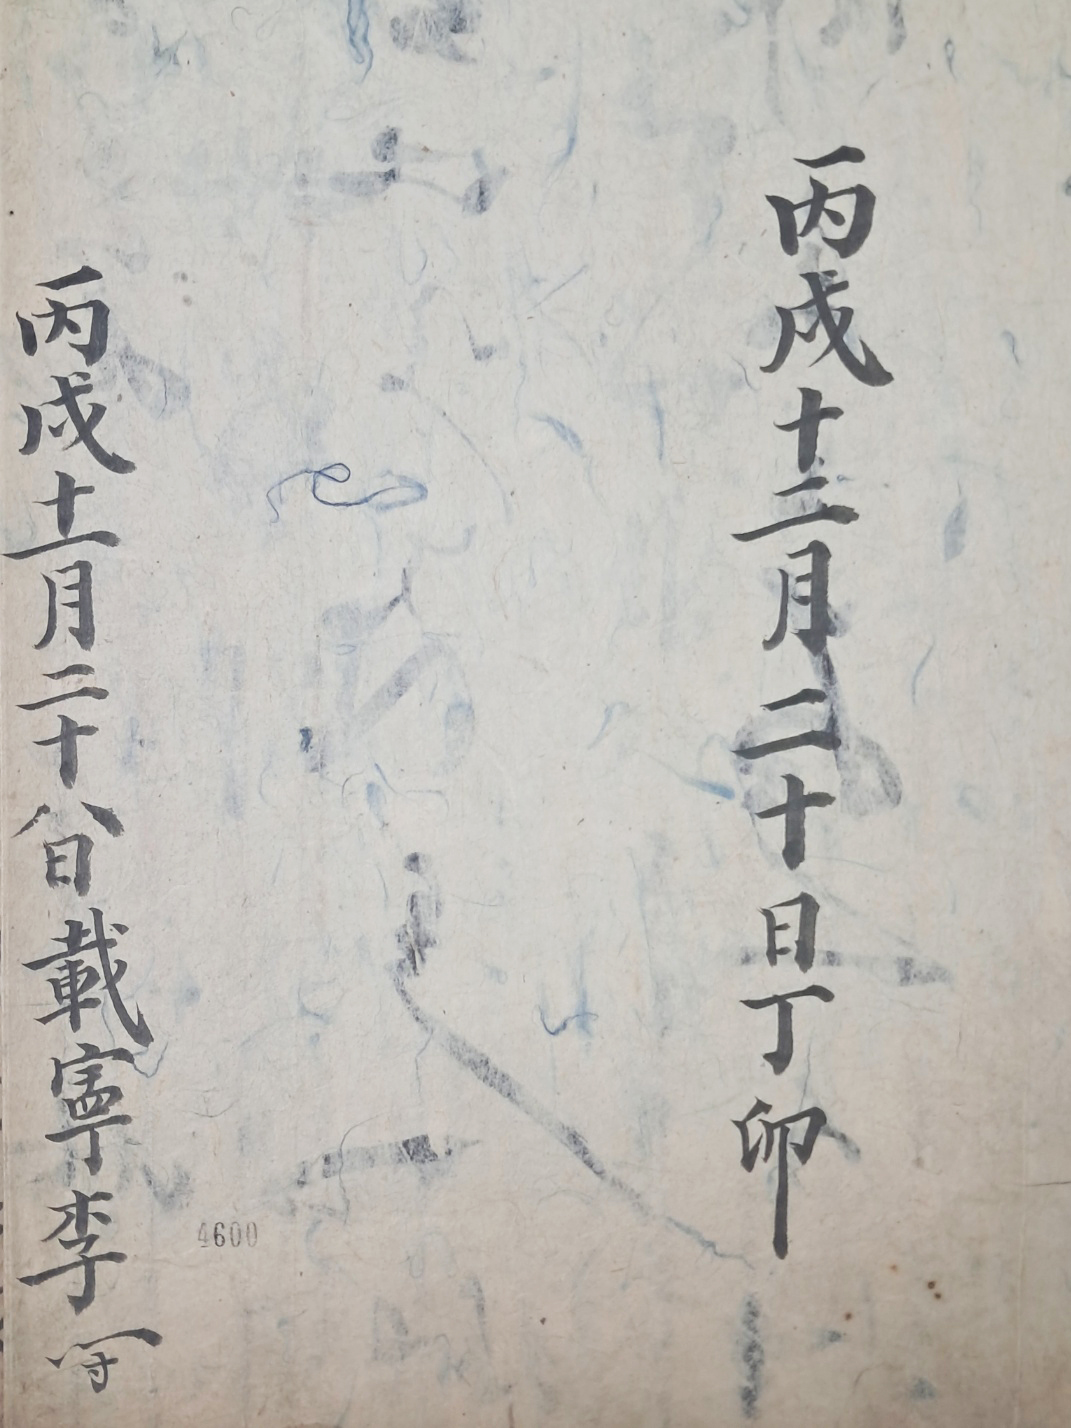 丙戌十二月二十日丁卯
丙戌十一月二十八日載寧李
4600